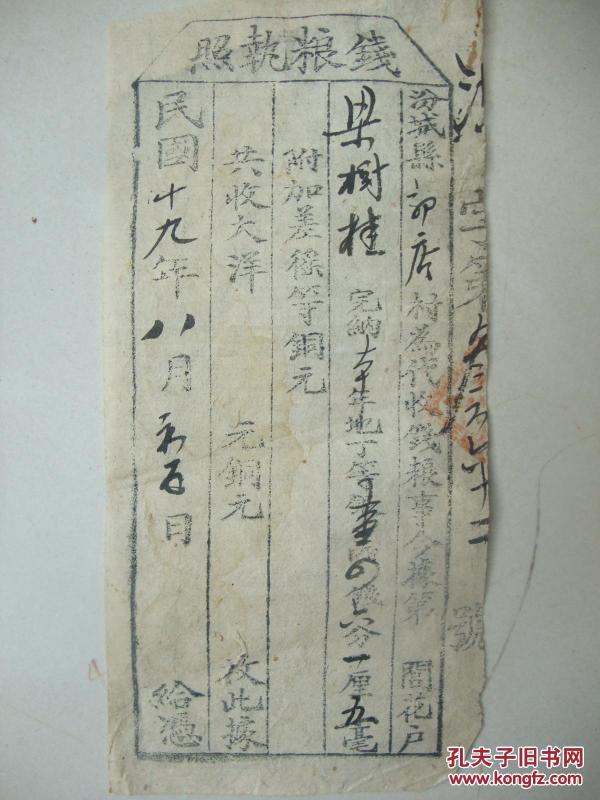 錢粮執照
字第叁百六十二號
汾城縣 店村為代收錢粮事今據第 閭花戶
梁樹桂 完納本年地丁等銀壹兩〇錢六分一厘五毫
附加差徭等銅元
共收大洋 元銅元 故此據
民國十九年八月 日 給憑
孔夫子旧书网
www.kongfz.com